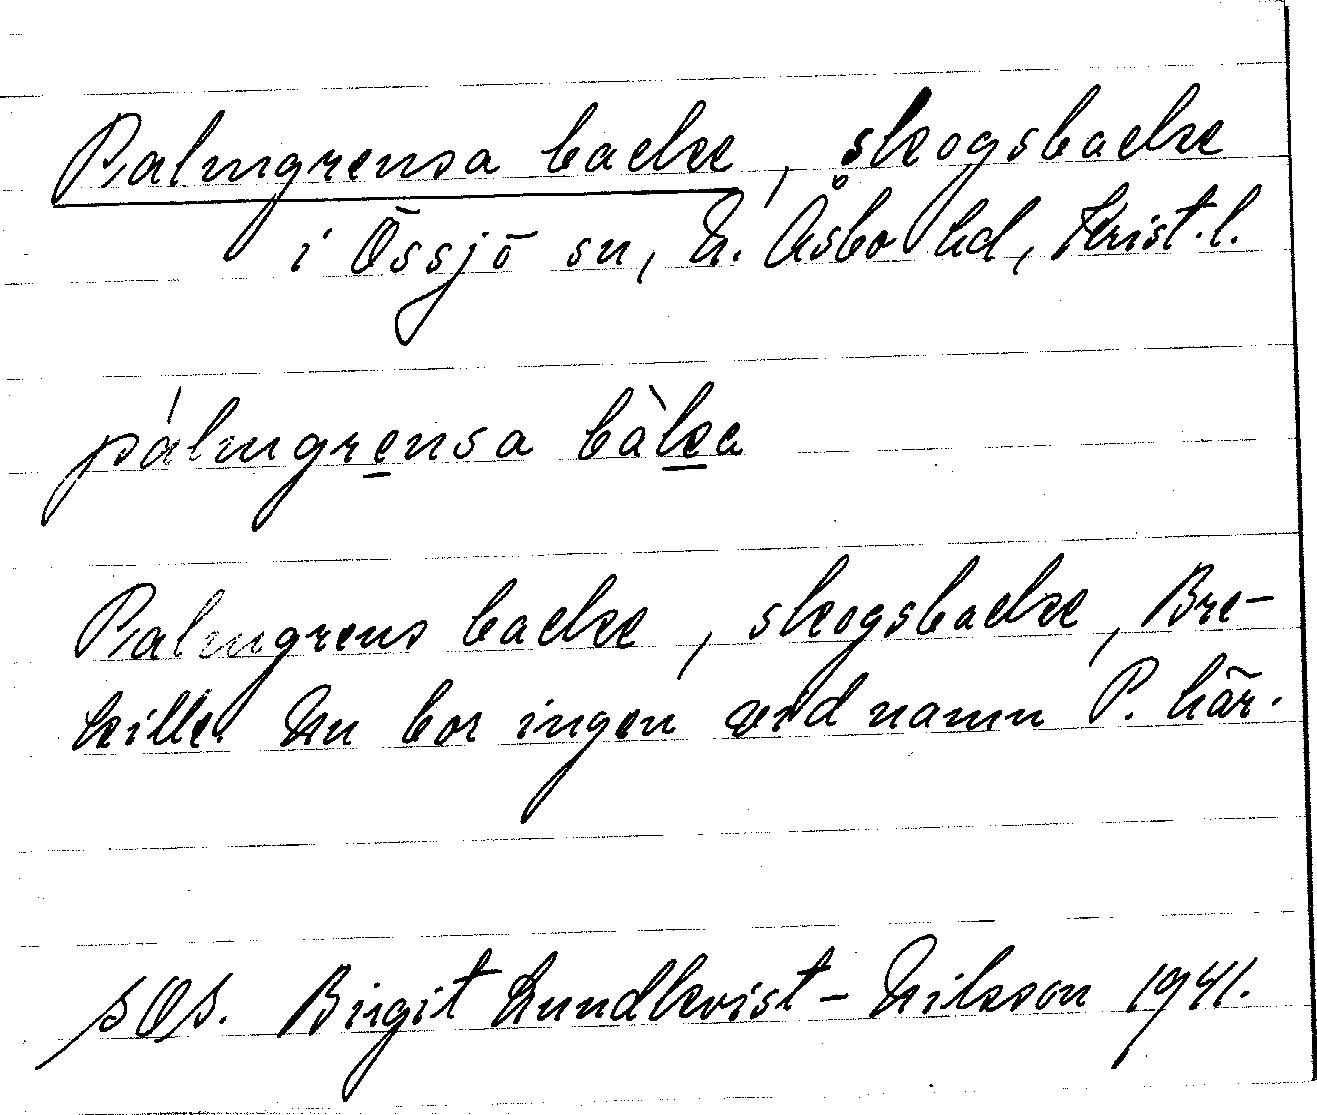 Palmgrensa backe, skogsbacke
i Össjö sn, N. Åsbo hd, Krist. l.
pálmgrensa bàkea
Palmgrens backe, skogsbacke, Bre-
kille. Nu bor ingen vid namn P. här.
SOS. Birgit Lundkvist-Nilsson 1941.